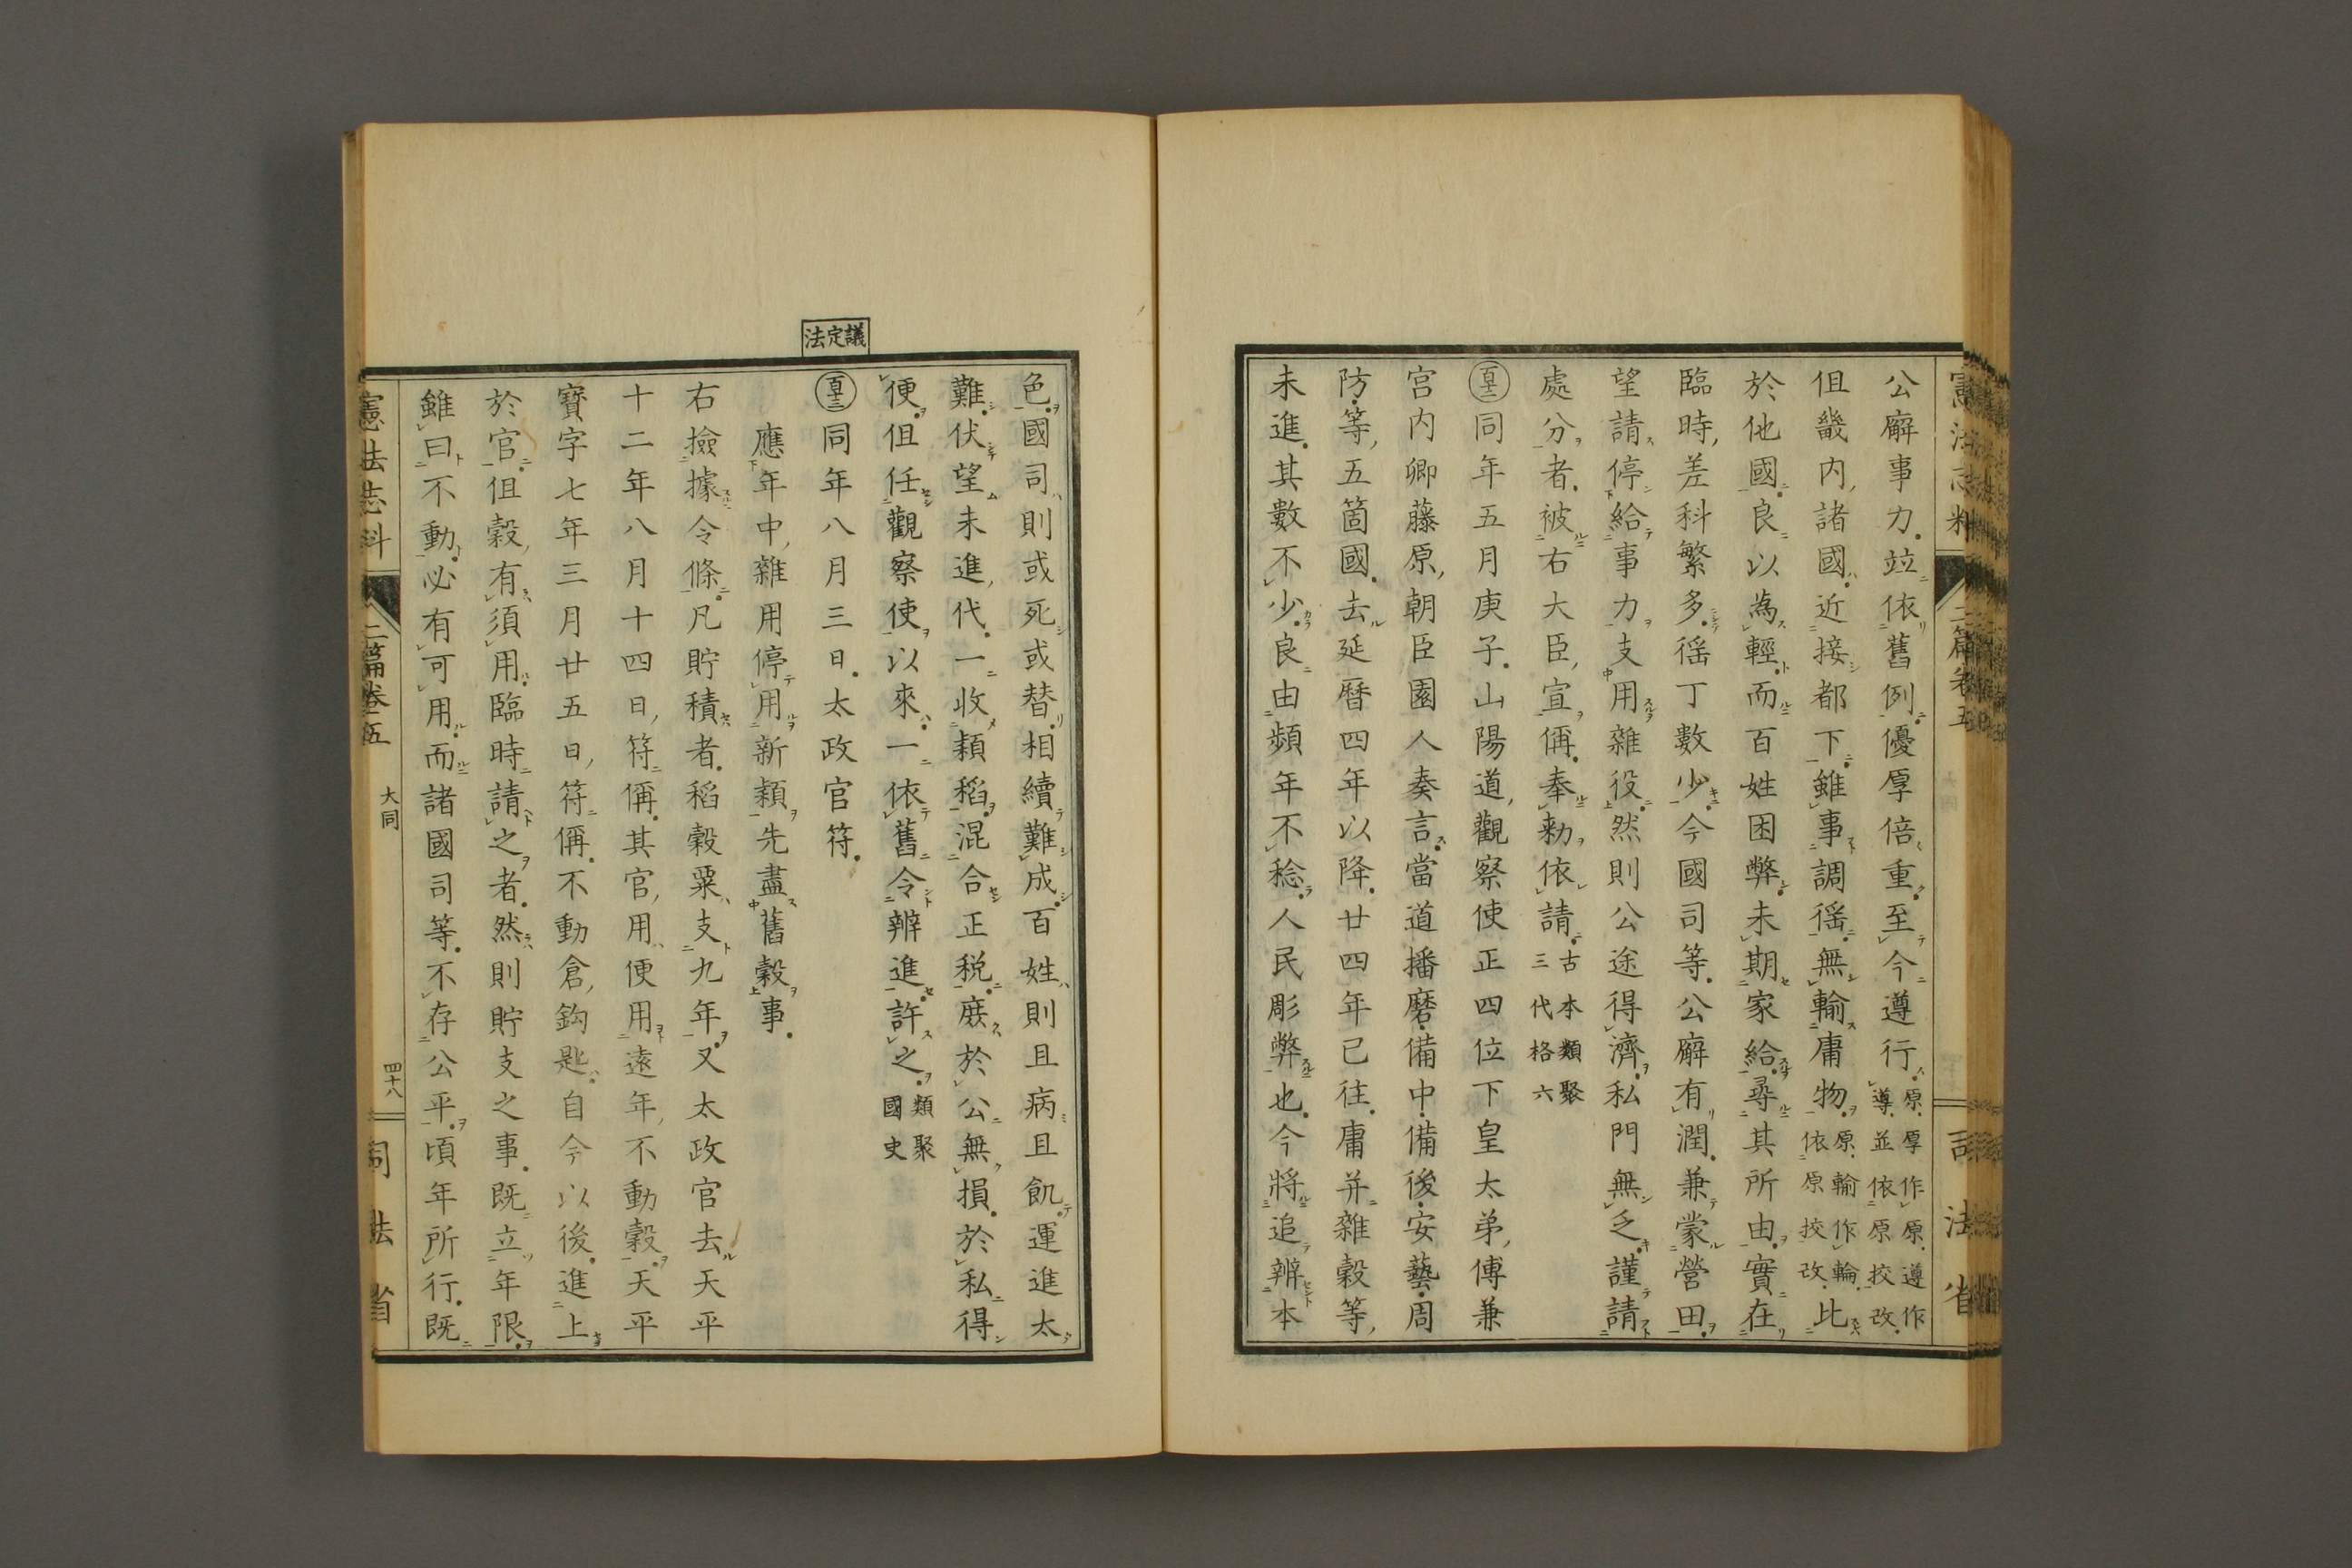 公廨事力。竝依舊例。優厚倍重。至今遵行。原、厚作原、遵作導、並依原挍改、
但畿内、諸國。近接都下。雖事調徭。無輸庸物。原、輸作輪、依原挍改、比
於他國。良以為輕。而百姓困弊。未期家給。尋其所由。實在
臨時、差科繁多。徭丁數少。今國司等。公廨有潤。兼蒙營田。
望請。停給事力支用雜役。然則公途得濟。私門無乏。謹請
處分者。被右大臣、宣偁。奉勅依請。古本類聚三代格六
同年五月庚子。山陽道、觀察使正四位下皇太弟、傅兼
宮内卿藤原、朝臣園人奏言。當道播磨。備中。備後。安藝。周
防。等、五箇國。去延暦四年以降。廿四年已往。庸并雜穀等、
未進。其數不少。良由頻年不稔。人民彫弊也。今將追辨本
色。國司則或死或替。相續難成。百姓則且病且飢。運進太
難。伏望未進、代。一收穎稻。混合正税。庶於公無損。於私得
便。但任觀察使以來。一依舊令辨進。許之。類聚國史
議定法
同年八月三日。太政官符。
應年中、雜用停用新穎。先盡舊穀事。
右撿據令條。凡貯積者。稻穀粟支九年。又太政官去天平
十二年八月十四日、符偁。其官、用、便用遠年、不動穀。天平
寶字七年三月廿五日、符偁。不動倉、鈎匙。自今以後。進上
於官。但穀、有須用。臨時請之者。然則貯支之事。既立年限。
雖曰不動。必有可用。而諸國司等。不存公平。頃年所行。既
憲法志料 二篇卷五 大同 四十八 司法省